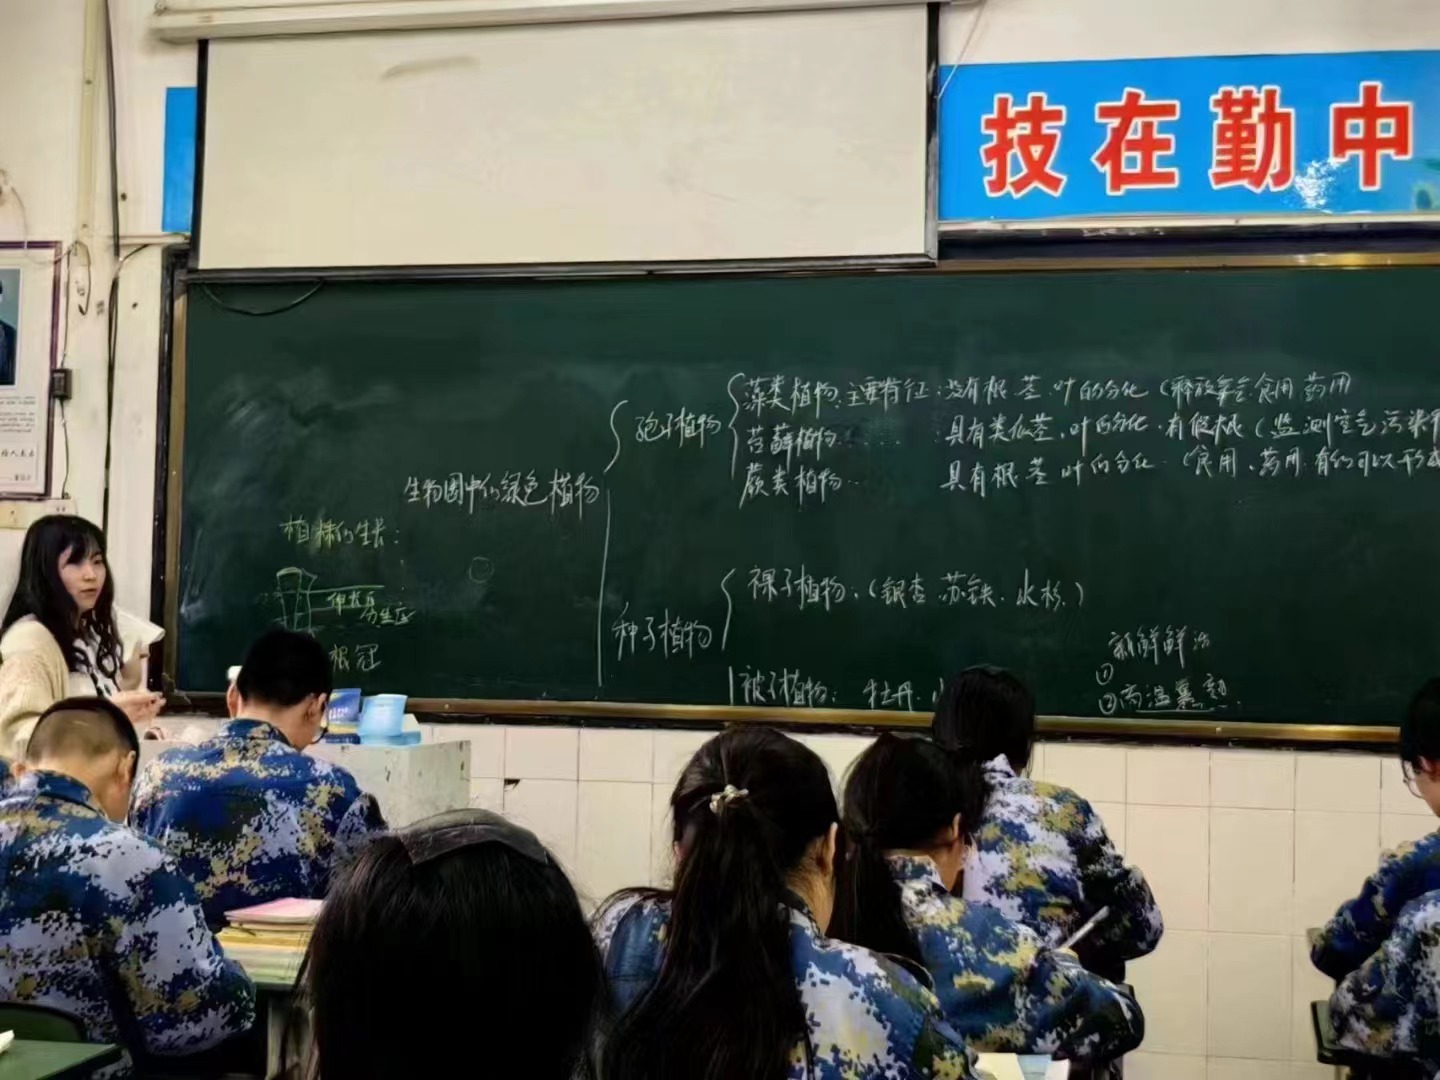 技在勤中
藻类植物:主要特征:没有根.茎.叶的分化(释放氧气.食用.药用
孢子植物
苔藓植物...... 具有类似茎、叶的分化.有假根(监测空气污染
蕨类植物.. 具有根.茎.叶的分化.(食用、药用.有的可以形成
生物圈中的绿色植物
植株的生长:
伸长区
分生区
根冠
裸子植物.(银杏.苏铁.水杉.)
种子植物
被子植物: 牡丹.
新鲜鲜活
①
②高温